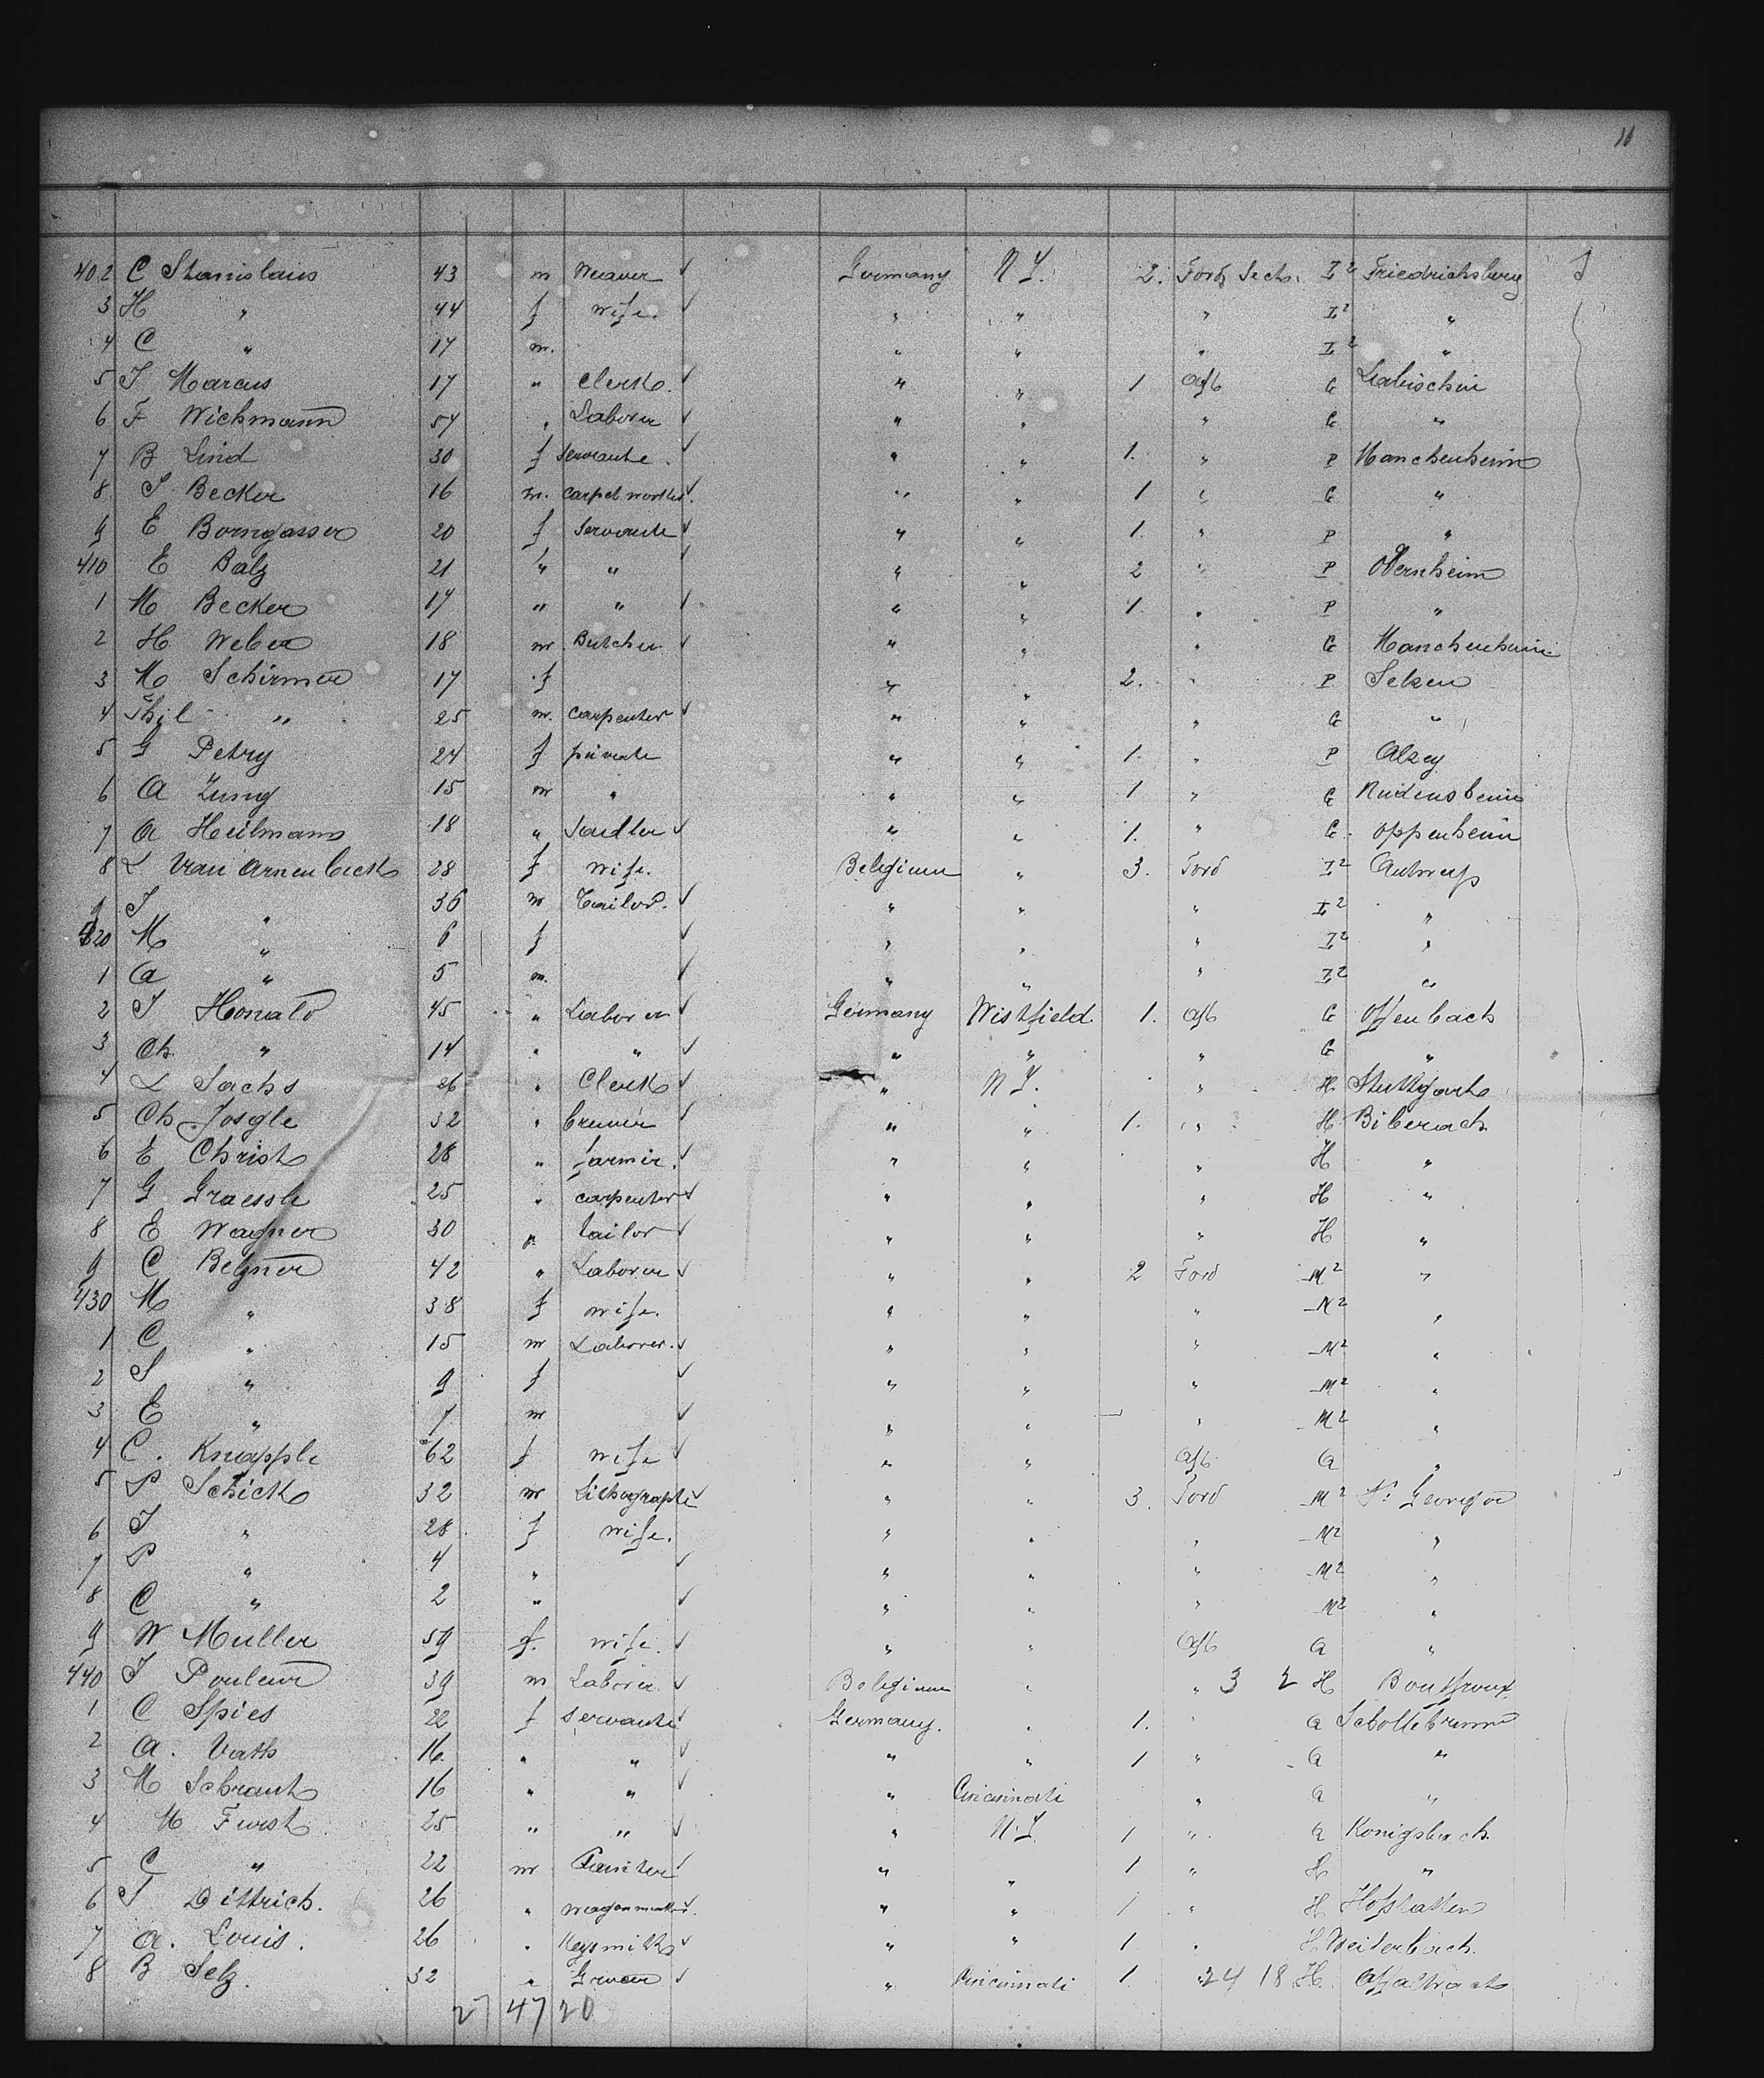 16
402 C Stanislaus 43 m Weaver ✓ Germany N Y. 2. Ford Sect. I² Friedrichsburg
3 H " 44 f wife. ✓ " " " I² "
4 C " 17 m. " " " I² "
5 J Marcus 17 " Clerk. ✓ " " 1 Aft G Labischin
6 F Wichmann 57 " Laborer ✓ " " " G "
7 B Lind 30 f servante. ✓ " " 1. " P Manchenheim
8 J Becker 16 m. carpet worker. ✓ " " 1 " G "
9 E Borngasser 20 f servante ✓ " " 1. " P "
410 E Balz 21 " " ✓ " " 2 " P Odernheim
1 M Becker 17 " " ✓ " " 1 " P "
2 H Weber 18 m Butcher ✓ " " " G Manchenheim
3 M Schirmer 17 f " " 2. " P Selzen
4 Phil " 25 m. carpenter ✓ " " " G "
5 G Petry 24 f private " " 1. " P Alzey
6 A Zung 15 m " " " 1 " G
7 A Heilmann 18 " Sadler ✓ " " 1. " G. Oppenheim
8 L Van Arnenbeck 28 f wife. Belgium " 3. Ford I² Antwerp
9 J " 36 m Tailor. ✓ " " " I² "
420 M " 6 f ✓ " " " I² "
1 A " 5 m. ✓ " " " I² "
2 J Honald 45 " Laborer ✓ Germany Westfield 1. Aft G Offenbach
3 Ch " 14 " " ✓ " " " G "
4 L Sachs 26 " Clerk ✓ " N Y. " H Stuttgart
5 Ch Josgle 32 " brewer ✓ " " 1. " H Biberach
6 E Christ 28 " farmer. ✓ " " " H "
7 G Graessle 25 " carpenter ✓ " " " H "
8 E Wagner 30 " tailor ✓ " " " H "
9 C Belzner 42 " Laborer ✓ " " 2 Ford M² "
430 M " 38 f wife. " " " M² "
1 C " 15 m Laborer. ✓ " " " M² "
2 S " 9 f ✓ " " " M² "
3 E " 7 m ✓ " " " M² "
4 C. Knapple 62 f wife ✓ " " Aft A "
5 P Schick 32 m Lithographe ✓ " " 3. Ford M² St Georgen
6 J " 28 f wife. " " " M² "
7 P " 4 " ✓ " " " M² "
8 C " 2 " ✓ " " " M² "
9 W Muller 59 f. wife. ✓ " " Aft A "
440 J Pouleur 39 m Laborer ✓ Belgium " " 3 2 H
1 C Spies 22 f servante Germany. " 1. " A Schollbrunn
2 A. Vath 16 " " ✓ " " 1 " A "
3 M Schraut 16 " " ✓ " Cincinnati " A "
4 M Furst 25 " " ✓ " N.Y. 1 " A Konigsbach
5 C " 22 m Painter ✓ " " 1 " H "
6 J Dittrich. 26 " wagonmaker ✓ " " 1 " H Hofstatten
7 A. Louis. 26 " Keysmith ✓ " " 1 " H Weilerbach.
8 B Selz. 32 " Grocer ✓ " Cincinnati 1 " 24 18 H.
27 47 20